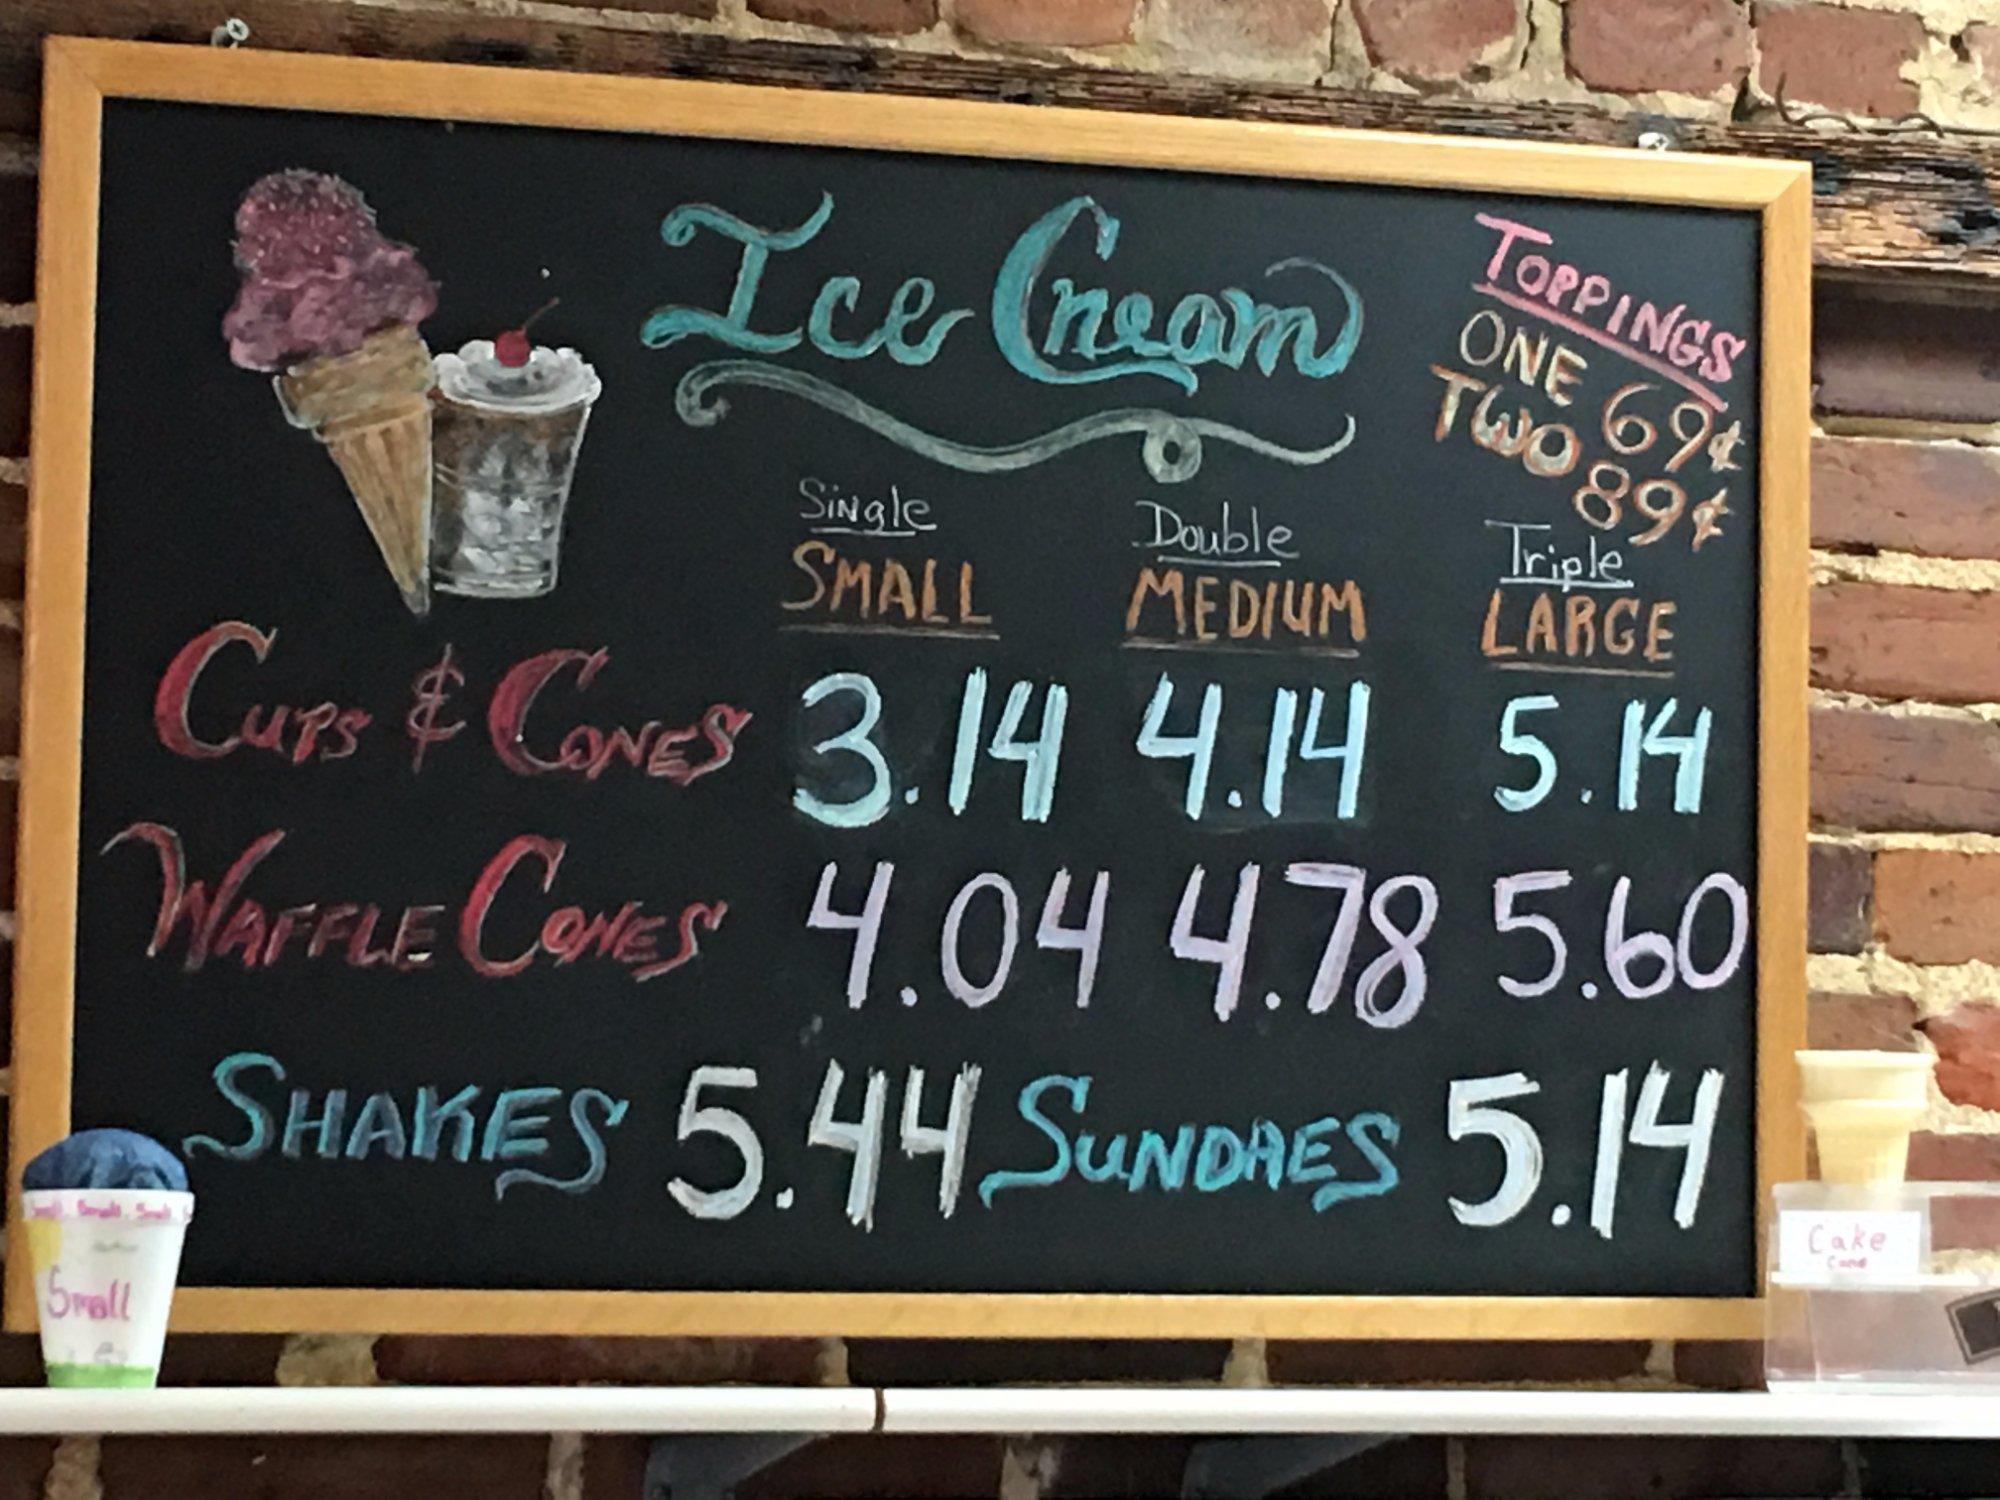 Ice Cream
TOPPINGS
ONE 69¢
TWO 89¢
Single Double Triple
SMALL MEDIUM LARGE
CUPS & CONES 3.14 4.14 5.14
WAFFLE CONES 4.04 4.78 5.60
SHAKES 5.44 SUNDAES 5.14
Small
Cake
Cone